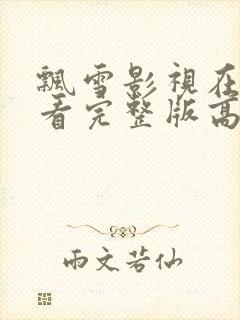 飄雪影視在
看完整版高
雨文若仙